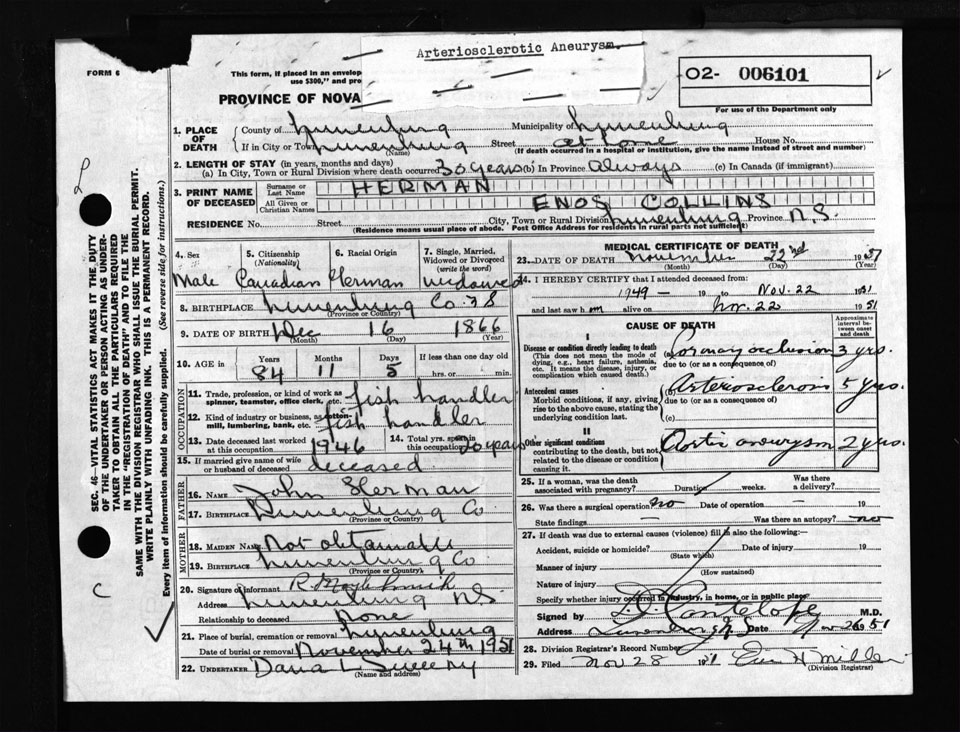 Arteriosclerotic Aneurysm.
FORM 6
This form, if placed in an envelop
use $300," and pre
PROVINCE OF NOVA
O2- 006101
For use of the Department only
SEC. 46—VITAL STATISTICS ACT MAKES IT THE DUTY
OF THE UNDERTAKER OR PERSON ACTING AS UNDER-
TAKER TO OBTAIN ALL THE PARTICULARS REQUIRED
IN THE "REGISTRATION OF DEATH" AND TO FILE THE
SAME WITH THE DIVISION REGISTRAR WHO SHALL ISSUE THE BURIAL PERMIT.
WRITE PLAINLY WITH UNFADING INK. THIS IS A PERMANENT RECORD.
Every item of information should be carefully supplied. (See reverse side for instructions.)
1. PLACE OF DEATH
County of Lunenburg Municipality of Lunenburg
If in City or Town Lunenburg Street at home House No.
(Name) (If death occurred in a hospital or institution, give the name instead of street and number)
2. LENGTH OF STAY (in years, months and days)
(a) In City, Town or Rural Division where death occurred 30 years (b) In Province always (c) In Canada (if immigrant)
3. PRINT NAME OF DECEASED
Surname or Last Name HERMAN
All Given or Christian Names ENOS COLLINS
RESIDENCE No. Street City, Town or Rural Division Lunenburg Province N.S.
(Residence means usual place of abode. Post Office Address for residents in rural parts not sufficient)
4. Sex 5. Citizenship (Nationality) 6. Racial Origin 7. Single, Married, Widowed or Divorced (write the word)
Male Canadian German widowed
8. BIRTHPLACE Lunenburg Co. N S
(Province or Country)
9. DATE OF BIRTH Dec 16 1866
(Month) (Day) (Year)
10. AGE in Years Months Days If less than one day old
84 11 5 hrs. or min.
OCCUPATION
11. Trade, profession, or kind of work as spinner, teamster, office clerk, etc. fish handler
12. Kind of industry or business, as cotton-mill, lumbering, bank, etc. fish handler
13. Date deceased last worked at this occupation 1946 14. Total yrs. spent in this occupation 20 years
15. If married give name of wife or husband of deceased deceased
FATHER
16. NAME John Herman
17. BIRTHPLACE Lunenburg Co
(Province or Country)
MOTHER
18. MAIDEN NAME Not obtainable
19. BIRTHPLACE Lunenburg Co
(Province or Country)
20. Signature of informant R.
Address Lunenburg N.S.
Relationship to deceased None
21. Place of burial, cremation or removal Lunenburg
Date of burial or removal November 24th 1951
22. UNDERTAKER Dana L Sweeny
(Name and address)
MEDICAL CERTIFICATE OF DEATH
23. DATE OF DEATH November 22nd 1951
(Month) (Day) (Year)
24. I HEREBY CERTIFY that I attended deceased from:
1949 - 19 to Nov. 22 1951
and last saw h im alive on Nov. 22 1951
CAUSE OF DEATH
Approximate interval between onset and death
Disease or condition directly leading to death
(This does not mean the mode of dying, e.g., heart failure, asthenia, etc. It means the disease, injury, or complication which caused death.)
(a) Coronary occlusion 3 yrs.
due to (or as a consequence of)
Antecedent causes
Morbid conditions, if any, giving rise to the above cause, stating the underlying condition last.
(b) Arterosclerosis 5 yrs.
due to (or as a consequence of)
(c)
II
Other significant conditions
contributing to the death, but not related to the disease or condition causing it.
Aortic aneurysm 2 yrs.
25. If a woman, was the death associated with pregnancy? Duration weeks. Was there a delivery?
26. Was there a surgical operation no Date of operation — 19
State findings — Was there an autopsy? no
27. If death was due to external causes (violence) fill in also the following:
Accident, suicide or homicide? Date of injury 19
(State which)
Manner of injury
(How sustained)
Nature of injury
Specify whether injury occurred in industry, in home, or in public place
Signed by Cantelope M.D.
Address Lunenburg N S Date Nov 26 1951
28. Division Registrar's Record Number
29. Filed Nov 28 1951 Miller
(Division Registrar)